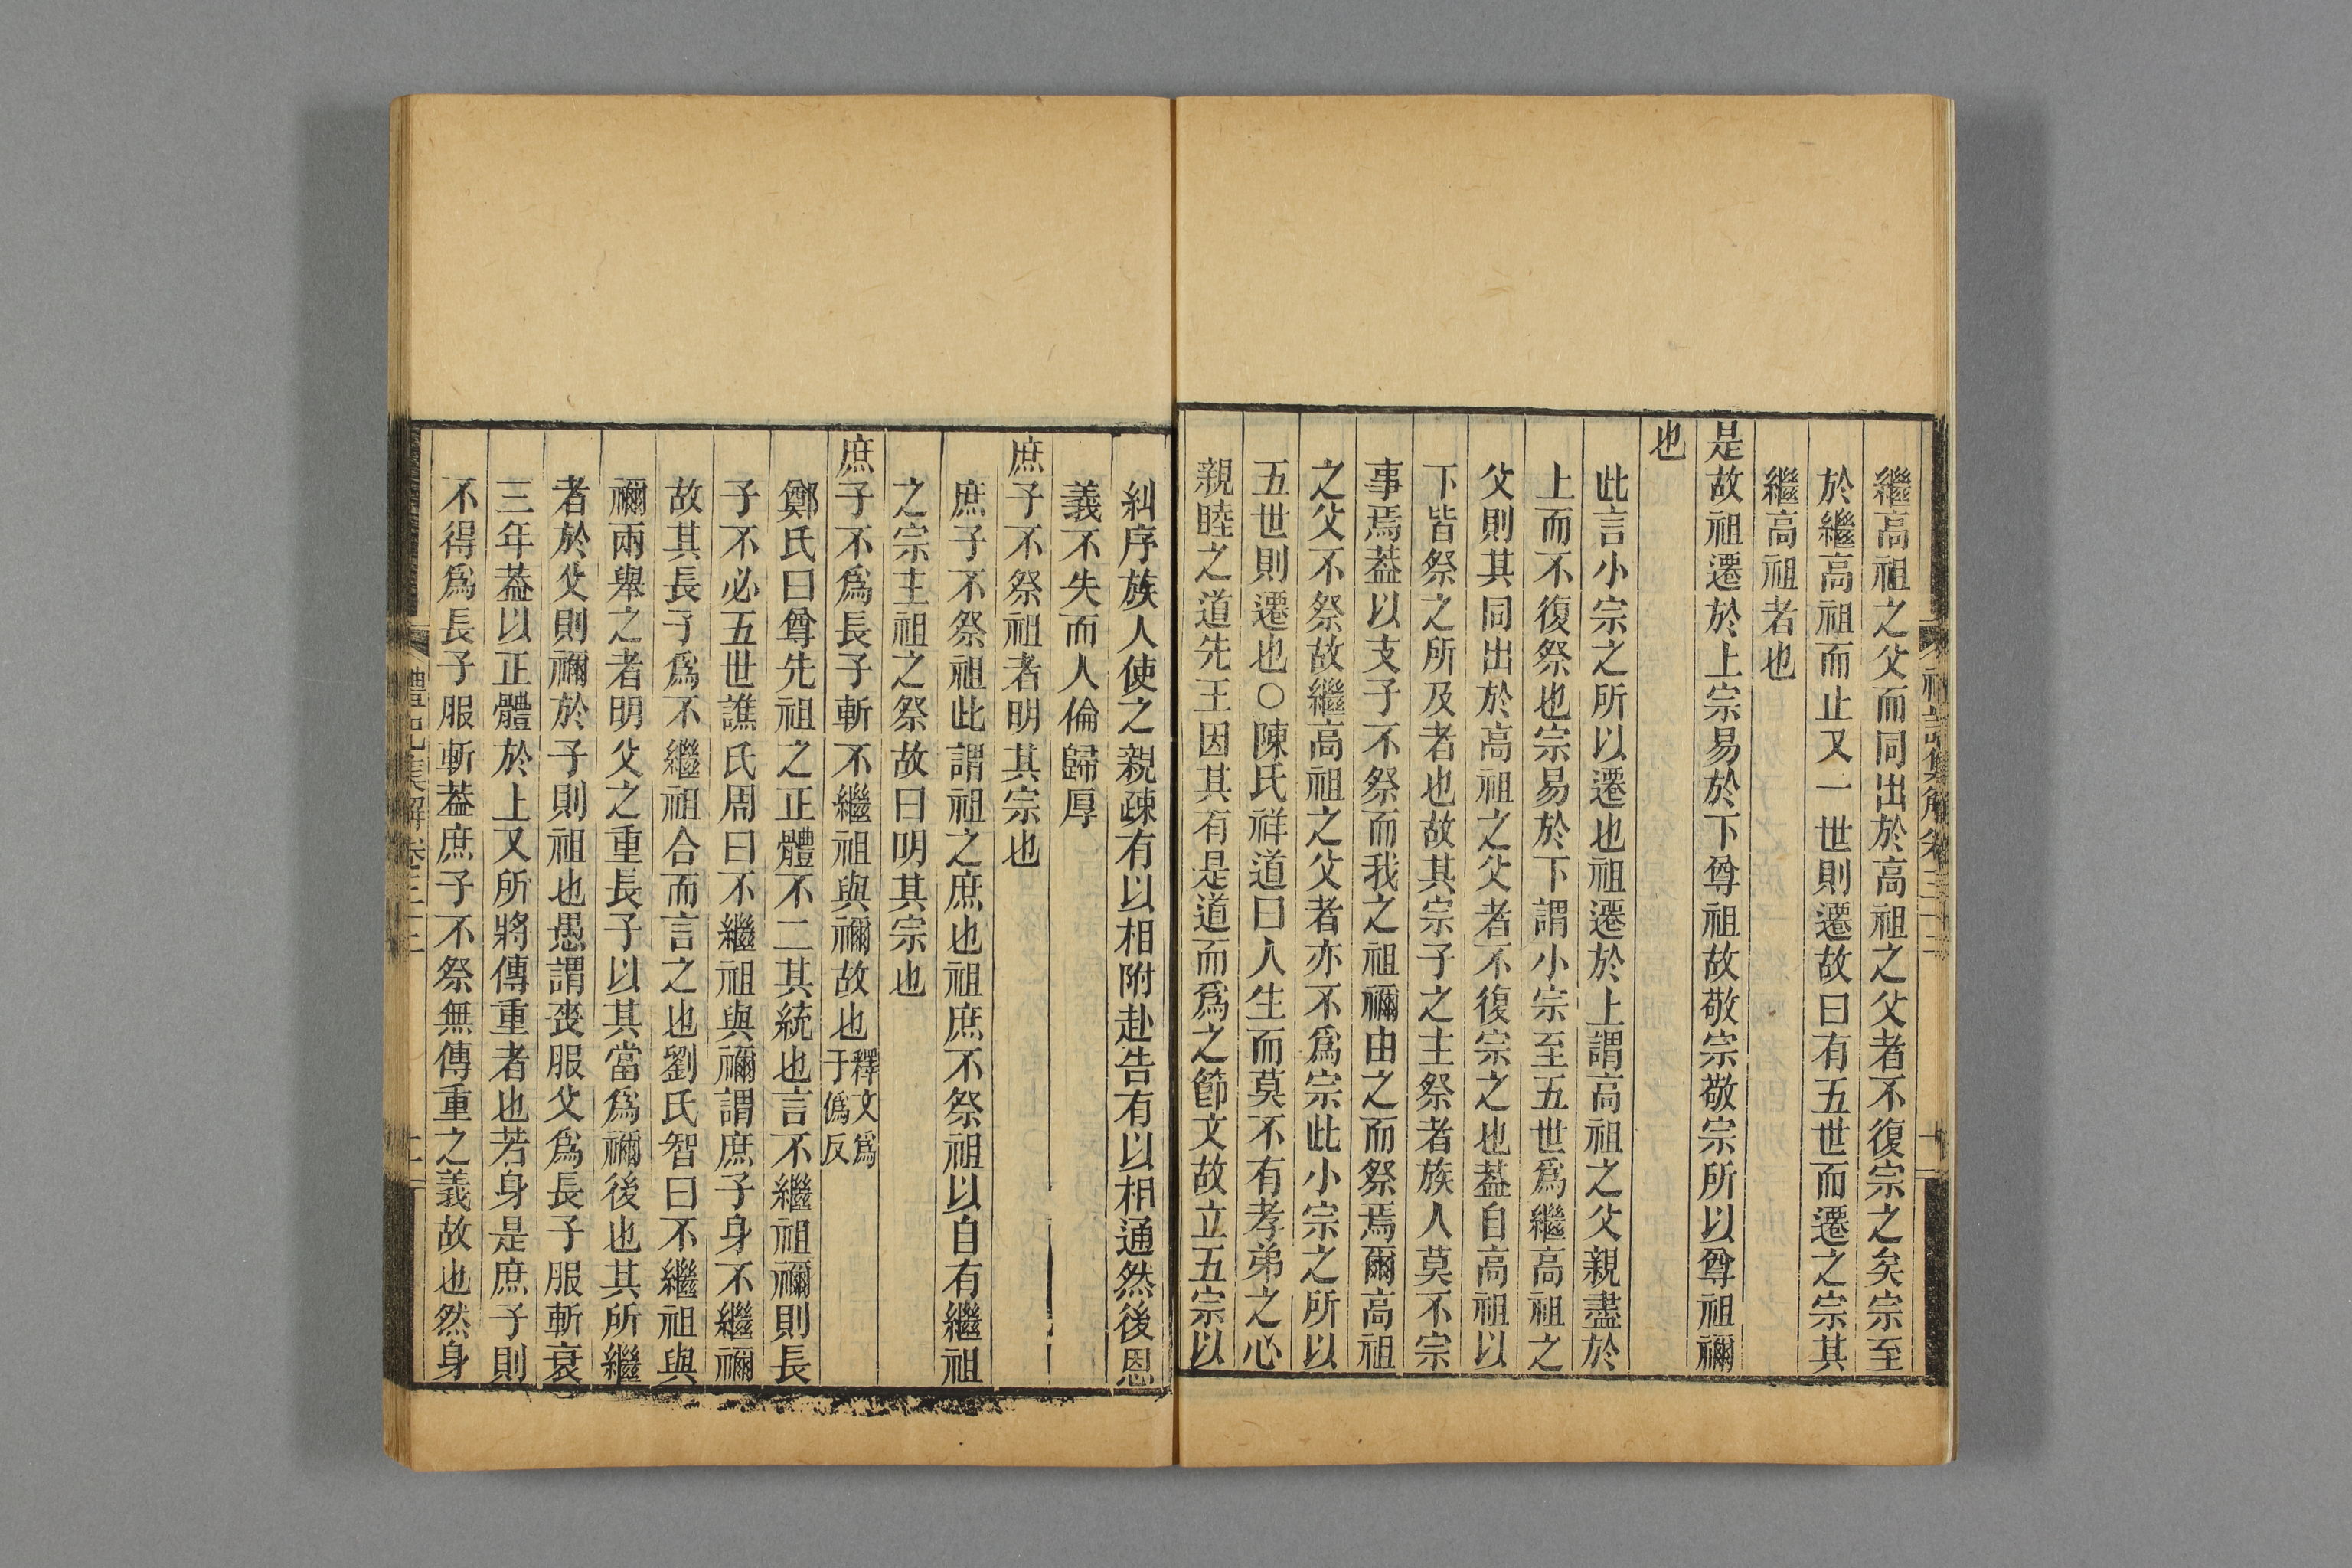 繼高祖之父而同出於高祖之父者不復宗之矣宗至
於繼高祖而止又一世則遷故曰有五世而遷之宗其
繼高祖者也
是故祖遷於上宗易於下尊祖故敬宗敬宗所以尊祖禰
也
此言小宗之所以遷也祖遷於上謂高祖之父親盡於
上而不復祭也宗易於下謂小宗至五世爲繼高祖之
父則其同出於高祖之父者不復宗之也葢自高祖以
下皆祭之所及者也故其宗子之主祭者族人莫不宗
事焉葢以支子不祭而我之祖禰由之而祭焉爾高祖
之父不祭故繼高祖之父者亦不爲宗此小宗之所以
五世則遷也○陳氏祥道曰人生而莫不有孝弟之心
親睦之道先王因其有是道而爲之節文故立五宗以
糾序族人使之親疎有以相附赴告有以相通然後恩
義不失而人倫歸厚
庶子不祭祖者明其宗也
庶子不祭祖此謂祖之庶也祖庶不祭祖以自有繼祖
之宗主祖之祭故曰明其宗也
庶子不爲長子斬不繼祖與禰故也釋文爲于僞反
鄭氏曰尊先祖之正體不二其統也言不繼祖禰則長
子不必五世譙氏周曰不繼祖與禰謂庶子身不繼禰
故其長子爲不繼祖合而言之也劉氏智曰不繼祖與
禰兩舉之者明父之重長子以其當爲禰後也其所繼
者於父則禰於子則祖也愚謂喪服父爲長子服斬衰
三年葢以正體於上又所將傳重者也若身是庶子則
不得爲長子服斬葢庶子不祭無傳重之義故也然身
禮記集解卷三十三